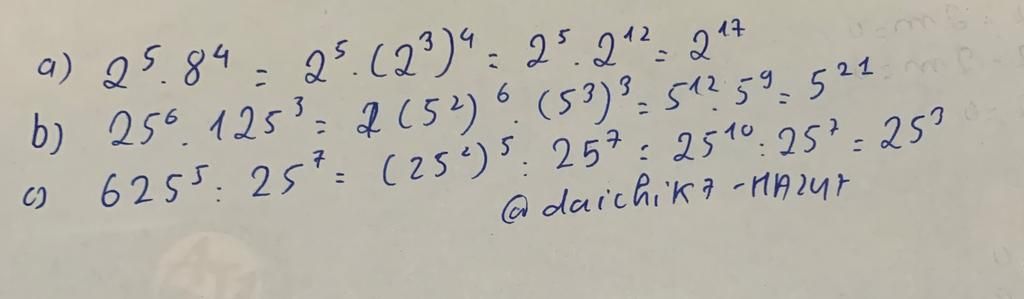 a) 2⁵ . 8⁴ = 2⁵ . (2³)⁴ = 2⁵ . 2¹² = 2¹⁷
b) 25⁶ . 125³ = (5²)⁶ . (5³)³ = 5¹² . 5⁹ = 5²¹
c) 625⁵ : 25⁷ = (25²)⁵ : 25⁷ = 25¹⁰ : 25⁷ = 25³